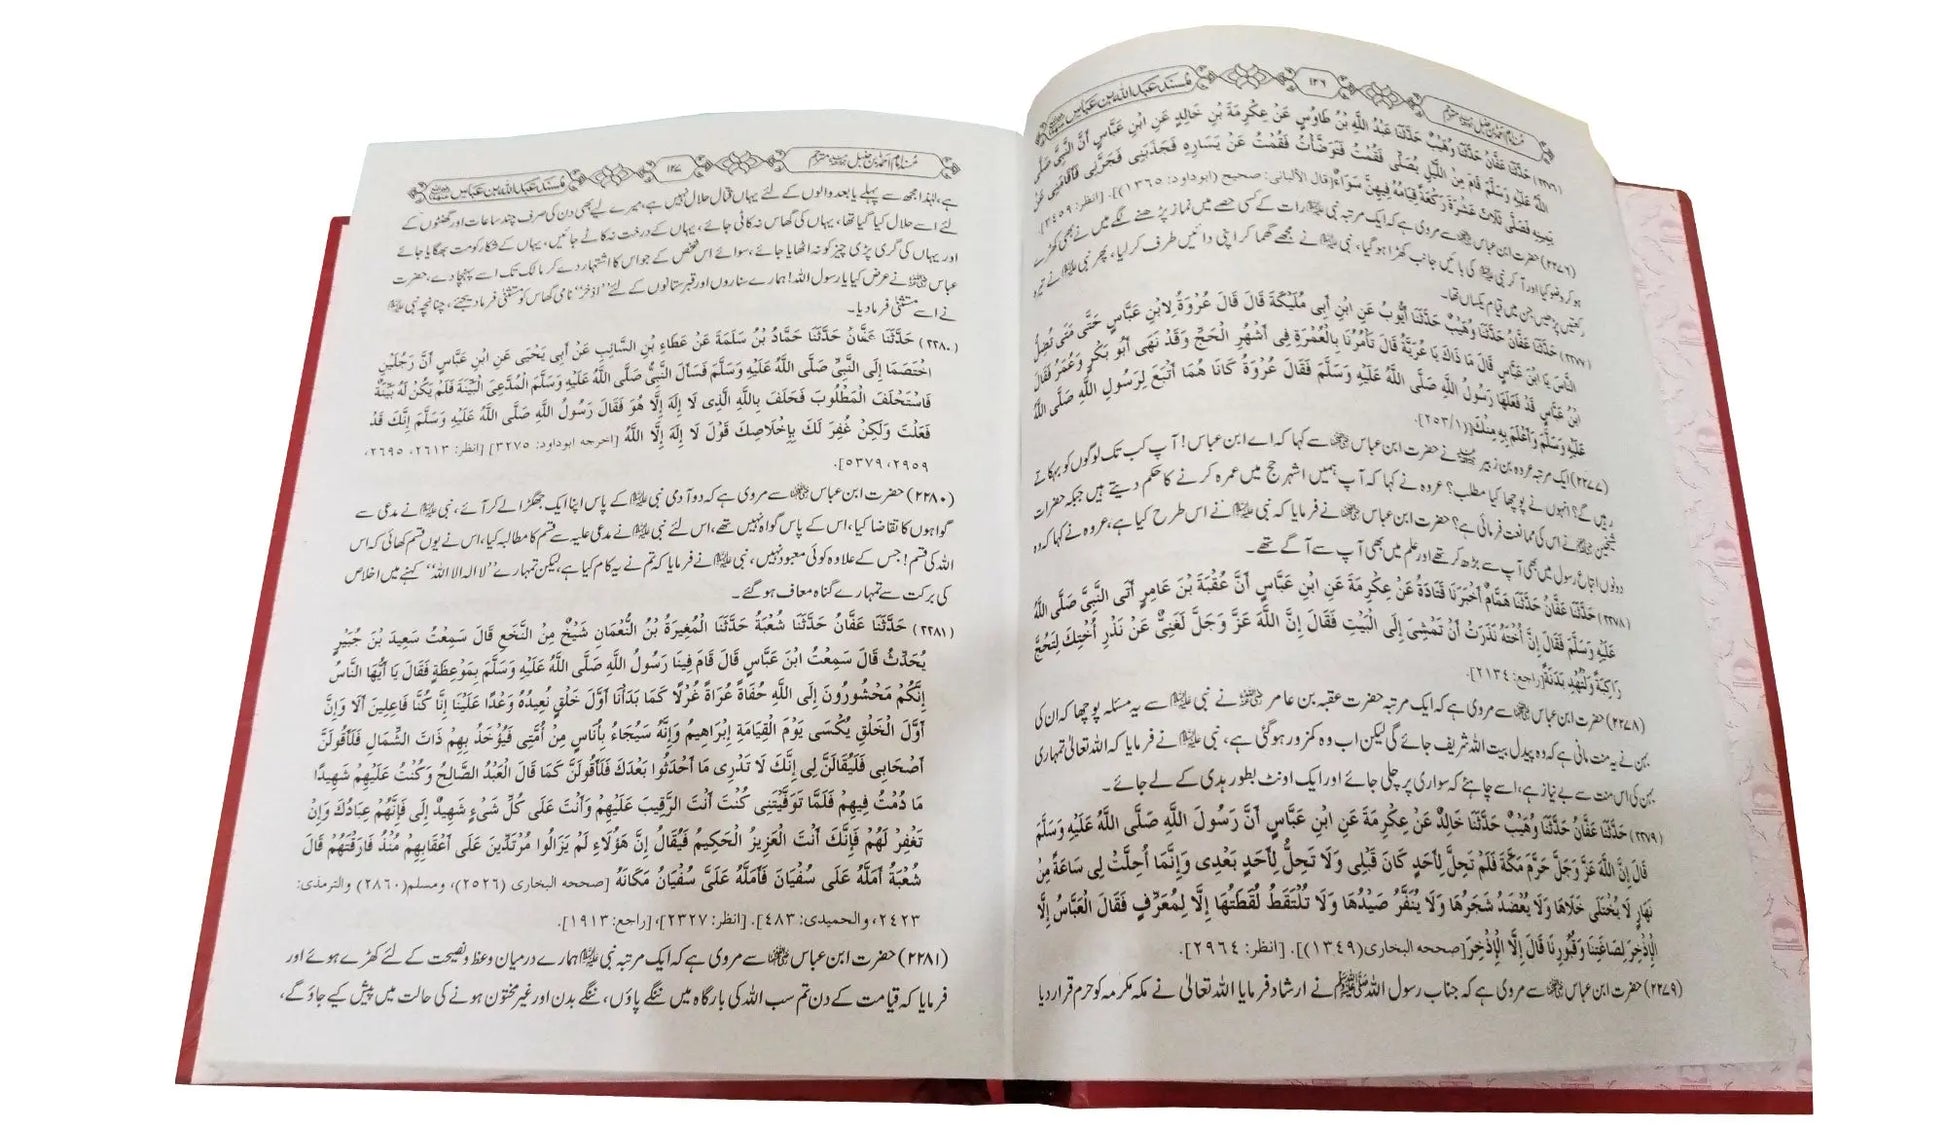 مُسنَد عَبد الله بن عَبّاس
١٣٦
مُسنَد امام احمد بن حنبل مترجم
(٢٢٧٦) حَدَّثَنَا عَفَّانُ حَدَّثَنَا وُهَيْبٌ حَدَّثَنَا عَبْدُ اللَّهِ بْنُ طَاوُسٍ عَنْ عِكْرِمَةَ بْنِ خَالِدٍ عَنِ ابْنِ عَبَّاسٍ أَنَّ النَّبِيَّ صَلَّى
اللَّهُ عَلَيْهِ وَسَلَّمَ قَامَ مِنَ اللَّيْلِ يُصَلِّي فَقُمْتُ فَتَوَضَّأْتُ فَقُمْتُ عَنْ يَسَارِهِ فَجَذَبَنِي فَجَرَّنِي فَأَقَامَنِي عَنْ
يَمِينِهِ فَصَلَّى ثَلَاثَ عَشْرَةَ رَكْعَةً قِيَامُهُ فِيهِنَّ سَوَاءٌ [قال الألباني: صحيح (ابوداود: ١٣٦٥)]. [انظر: ٣٤٥٩].
(٢٢٧٦) حضرت ابن عباس ؓ سے مروی ہے کہ ایک مرتبہ نبی ﷺ رات کے کسی حصے میں نماز پڑھنے لگے میں نے بھی کھڑے
ہو کر وضو کیا اور آ کر نبی ﷺ کی بائیں جانب کھڑا ہو گیا، نبی ﷺ نے مجھے گھما کر اپنی دائیں طرف کر لیا، پھر نبی ﷺ نے تیرہ
رکعتیں پڑھیں جن میں قیام یکساں تھا۔
(٢٢٧٧) حَدَّثَنَا عَفَّانُ حَدَّثَنَا وُهَيْبٌ حَدَّثَنَا أَيُّوبُ عَنِ ابْنِ أَبِي مُلَيْكَةَ قَالَ قَالَ عُرْوَةُ لِابْنِ عَبَّاسٍ حَتَّى مَتَى تُضِلُّ
النَّاسَ يَا ابْنَ عَبَّاسٍ قَالَ مَا ذَاكَ يَا عُرَيَّةُ قَالَ تَأْمُرُنَا بِالْعُمْرَةِ فِي أَشْهُرِ الْحَجِّ وَقَدْ نَهَى أَبُو بَكْرٍ وَعُمَرُ فَقَالَ
ابْنُ عَبَّاسٍ قَدْ فَعَلَهَا رَسُولُ اللَّهِ صَلَّى اللَّهُ عَلَيْهِ وَسَلَّمَ فَقَالَ عُرْوَةُ كَانَا هُمَا أَتْبَعَ لِرَسُولِ اللَّهِ صَلَّى اللَّهُ
عَلَيْهِ وَسَلَّمَ وَأَعْلَمَ بِهِ مِنْكَ [(٢٥٣/١)].
(٢٢٧٧) ایک مرتبہ عروہ بن زبیر نے حضرت ابن عباس ؓ سے کہا کہ اے ابن عباس! آپ کب تک لوگوں کو بہکاتے
رہیں گے؟ انہوں نے پوچھا کیا مطلب؟ عروہ نے کہا کہ آپ ہمیں اشہر حج میں عمرہ کرنے کا حکم دیتے ہیں جبکہ حضرات
شیخین ؓ نے اس کی ممانعت فرمائی ہے؟ حضرت ابن عباس ؓ نے فرمایا کہ نبی ﷺ نے اس طرح کیا ہے، عروہ نے کہا کہ وہ
دونوں اتباع رسول میں بھی آپ سے بڑھ کر تھے اور علم میں بھی آپ سے آگے تھے۔
(٢٢٧٨) حَدَّثَنَا عَفَّانُ حَدَّثَنَا هَمَّامٌ أَخْبَرَنَا قَتَادَةُ عَنْ عِكْرِمَةَ عَنِ ابْنِ عَبَّاسٍ أَنَّ عُقْبَةَ بْنَ عَامِرٍ أَتَى النَّبِيَّ صَلَّى اللَّهُ
عَلَيْهِ وَسَلَّمَ فَقَالَ إِنَّ أُخْتَهُ نَذَرَتْ أَنْ تَمْشِيَ إِلَى الْبَيْتِ فَقَالَ إِنَّ اللَّهَ عَزَّ وَجَلَّ لَغَنِيٌّ عَنْ نَذْرِ أُخْتِكَ لِتَحُجَّ
رَاكِبَةً وَلْتُهْدِ بَدَنَةً [راجع: ٢١٣٤].
(٢٢٧٨) حضرت ابن عباس ؓ سے مروی ہے کہ ایک مرتبہ حضرت عقبہ بن عامر ؓ نے نبی ﷺ سے یہ مسئلہ پوچھا کہ ان کی
بہن نے یہ منت مانی ہے کہ وہ پیدل بیت اللہ شریف جائے گی لیکن اب وہ کمزور ہو گئی ہے، نبی ﷺ نے فرمایا کہ اللہ تعالیٰ تمہاری
بہن کی اس منت سے بے نیاز ہے، اسے چاہئے کہ سواری پر چلی جائے اور ایک اونٹ بطور ہدی کے لے جائے۔
(٢٢٧٩) حَدَّثَنَا عَفَّانُ حَدَّثَنَا وُهَيْبٌ حَدَّثَنَا خَالِدٌ عَنْ عِكْرِمَةَ عَنِ ابْنِ عَبَّاسٍ أَنَّ رَسُولَ اللَّهِ صَلَّى اللَّهُ عَلَيْهِ وَسَلَّمَ
قَالَ إِنَّ اللَّهَ عَزَّ وَجَلَّ حَرَّمَ مَكَّةَ فَلَمْ تَحِلَّ لِأَحَدٍ كَانَ قَبْلِي وَلَا تَحِلُّ لِأَحَدٍ بَعْدِي وَإِنَّمَا أُحِلَّتْ لِي سَاعَةً مِنْ
نَهَارٍ لَا يُخْتَلَى خَلَاهَا وَلَا يُعْضَدُ شَجَرُهَا وَلَا يُنَفَّرُ صَيْدُهَا وَلَا تُلْتَقَطُ لُقَطَتُهَا إِلَّا لِمُعَرِّفٍ فَقَالَ الْعَبَّاسُ إِلَّا
الْإِذْخِرَ لِصَاغَتِنَا وَقُبُورِنَا قَالَ إِلَّا الْإِذْخِرَ [صححه البخاري (١٣٤٩)]. [انظر: ٢٩٦٤].
(٢٢٧٩) حضرت ابن عباس ؓ سے مروی ہے کہ جناب رسول اللہ ﷺ نے ارشاد فرمایا اللہ تعالیٰ نے مکہ مکرمہ کو حرم قرار دیا
مُسنَد عَبد الله بن عَبّاس
١٣٧
مُسنَد امام احمد بن حنبل مترجم
ہے، لہٰذا مجھ سے پہلے یا بعد والوں کے لئے یہاں قتال حلال نہیں ہے، میرے لیے بھی دن کی صرف چند ساعات اور گھنٹوں کے
لئے اسے حلال کیا گیا تھا، یہاں کی گھاس نہ کاٹی جائے، یہاں کے درخت نہ کاٹے جائیں، یہاں کے شکار کو مت بھگایا جائے
اور یہاں کی گری پڑی چیز کو نہ اٹھایا جائے، سوائے اس شخص کے جو اس کا اشتہار دے کر مالک تک اسے پہنچا دے، حضرت
عباس ؓ نے عرض کیا یا رسول اللہ! ہمارے سناروں اور قبرستانوں کے لئے ''اذخر'' نامی گھاس کو مستثنیٰ فرما دیجئے، چنانچہ نبی ﷺ
نے اسے مستثنیٰ فرما دیا۔
(٢٢٨٠) حَدَّثَنَا عَفَّانُ حَدَّثَنَا حَمَّادُ بْنُ سَلَمَةَ عَنْ عَطَاءِ بْنِ السَّائِبِ عَنْ أَبِي يَحْيَى عَنِ ابْنِ عَبَّاسٍ أَنَّ رَجُلَيْنِ
اخْتَصَمَا إِلَى النَّبِيِّ صَلَّى اللَّهُ عَلَيْهِ وَسَلَّمَ فَسَأَلَ النَّبِيُّ صَلَّى اللَّهُ عَلَيْهِ وَسَلَّمَ الْمُدَّعِيَ الْبَيِّنَةَ فَلَمْ يَكُنْ لَهُ بَيِّنَةٌ
فَاسْتَحْلَفَ الْمَطْلُوبَ فَحَلَفَ بِاللَّهِ الَّذِي لَا إِلَهَ إِلَّا هُوَ فَقَالَ رَسُولُ اللَّهِ صَلَّى اللَّهُ عَلَيْهِ وَسَلَّمَ إِنَّكَ قَدْ
فَعَلْتَ وَلَكِنْ غُفِرَ لَكَ بِإِخْلَاصِكَ قَوْلَ لَا إِلَهَ إِلَّا اللَّهُ [اخرجه ابوداود: ٣٢٧٥] [انظر: ٢٦١٣، ٢٦٩٥،
٢٩٥٩، ٥٣٧٩].
(٢٢٨٠) حضرت ابن عباس ؓ سے مروی ہے کہ دو آدمی نبی ﷺ کے پاس اپنا ایک جھگڑا لے کر آئے، نبی ﷺ نے مدعی سے
گواہوں کا تقاضا کیا، اس کے پاس گواہ نہیں تھے، اس لئے نبی ﷺ نے مدعی علیہ سے قسم کا مطالبہ کیا، اس نے یوں قسم کھائی کہ اس
اللہ کی قسم! جس کے علاوہ کوئی معبود نہیں، نبی ﷺ نے فرمایا کہ تم نے یہ کام کیا ہے، لیکن تمہارے ''لا الہ الا اللہ'' کہنے میں اخلاص
کی برکت سے تمہارے گناہ معاف ہو گئے۔
(٢٢٨١) حَدَّثَنَا عَفَّانُ حَدَّثَنَا شُعْبَةُ حَدَّثَنَا الْمُغِيرَةُ بْنُ النُّعْمَانِ شَيْخٌ مِنَ النَّخَعِ قَالَ سَمِعْتُ سَعِيدَ بْنَ جُبَيْرٍ
يُحَدِّثُ قَالَ سَمِعْتُ ابْنَ عَبَّاسٍ قَالَ قَامَ فِينَا رَسُولُ اللَّهِ صَلَّى اللَّهُ عَلَيْهِ وَسَلَّمَ بِمَوْعِظَةٍ فَقَالَ يَا أَيُّهَا النَّاسُ
إِنَّكُمْ مَحْشُورُونَ إِلَى اللَّهِ حُفَاةً عُرَاةً غُرْلًا كَمَا بَدَأْنَا أَوَّلَ خَلْقٍ نُعِيدُهُ وَعْدًا عَلَيْنَا إِنَّا كُنَّا فَاعِلِينَ أَلَا وَإِنَّ
أَوَّلَ الْخَلْقِ يُكْسَى يَوْمَ الْقِيَامَةِ إِبْرَاهِيمُ وَإِنَّهُ سَيُجَاءُ بِأُنَاسٍ مِنْ أُمَّتِي فَيُؤْخَذُ بِهِمْ ذَاتَ الشِّمَالِ فَلَأَقُولَنَّ
أَصْحَابِي فَلَيُقَالَنَّ لِي إِنَّكَ لَا تَدْرِي مَا أَحْدَثُوا بَعْدَكَ فَلَأَقُولَنَّ كَمَا قَالَ الْعَبْدُ الصَّالِحُ وَكُنْتُ عَلَيْهِمْ شَهِيدًا
مَا دُمْتُ فِيهِمْ فَلَمَّا تَوَفَّيْتَنِي كُنْتَ أَنْتَ الرَّقِيبَ عَلَيْهِمْ وَأَنْتَ عَلَى كُلِّ شَيْءٍ شَهِيدٌ إِلَى فَإِنَّهُمْ عِبَادُكَ وَإِنْ
تَغْفِرْ لَهُمْ فَإِنَّكَ أَنْتَ الْعَزِيزُ الْحَكِيمُ فَيُقَالُ إِنَّ هَؤُلَاءِ لَمْ يَزَالُوا مُرْتَدِّينَ عَلَى أَعْقَابِهِمْ مُنْذُ فَارَقْتَهُمْ قَالَ
شُعْبَةُ أَمَلَّهُ عَلَى سُفْيَانَ فَأَمَلَّهُ عَلَيَّ سُفْيَانُ مَكَانَهُ [صححه البخاري (٢٥٢٦)، ومسلم (٢٨٦٠) والترمذي:
٢٤٢٣، والحميدي: ٤٨٣]. [انظر: ٢٣٢٧]، [راجع: ١٩١٣].
(٢٢٨١) حضرت ابن عباس ؓ سے مروی ہے کہ ایک مرتبہ نبی ﷺ ہمارے درمیان وعظ و نصیحت کے لئے کھڑے ہوئے اور
فرمایا کہ قیامت کے دن تم سب اللہ کی بارگاہ میں ننگے پاؤں، ننگے بدن اور غیر مختون ہونے کی حالت میں پیش کیے جاؤ گے،